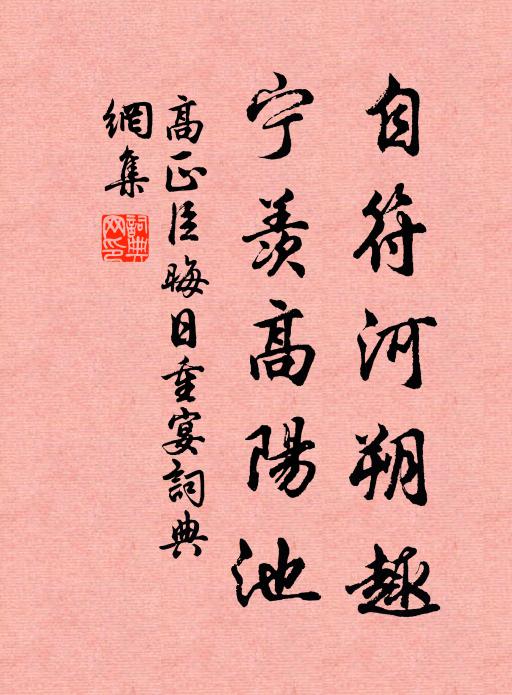 自符河朔趣
宁羡高陽池
高正臣晦日重宴詞典
網集
詞典
网印